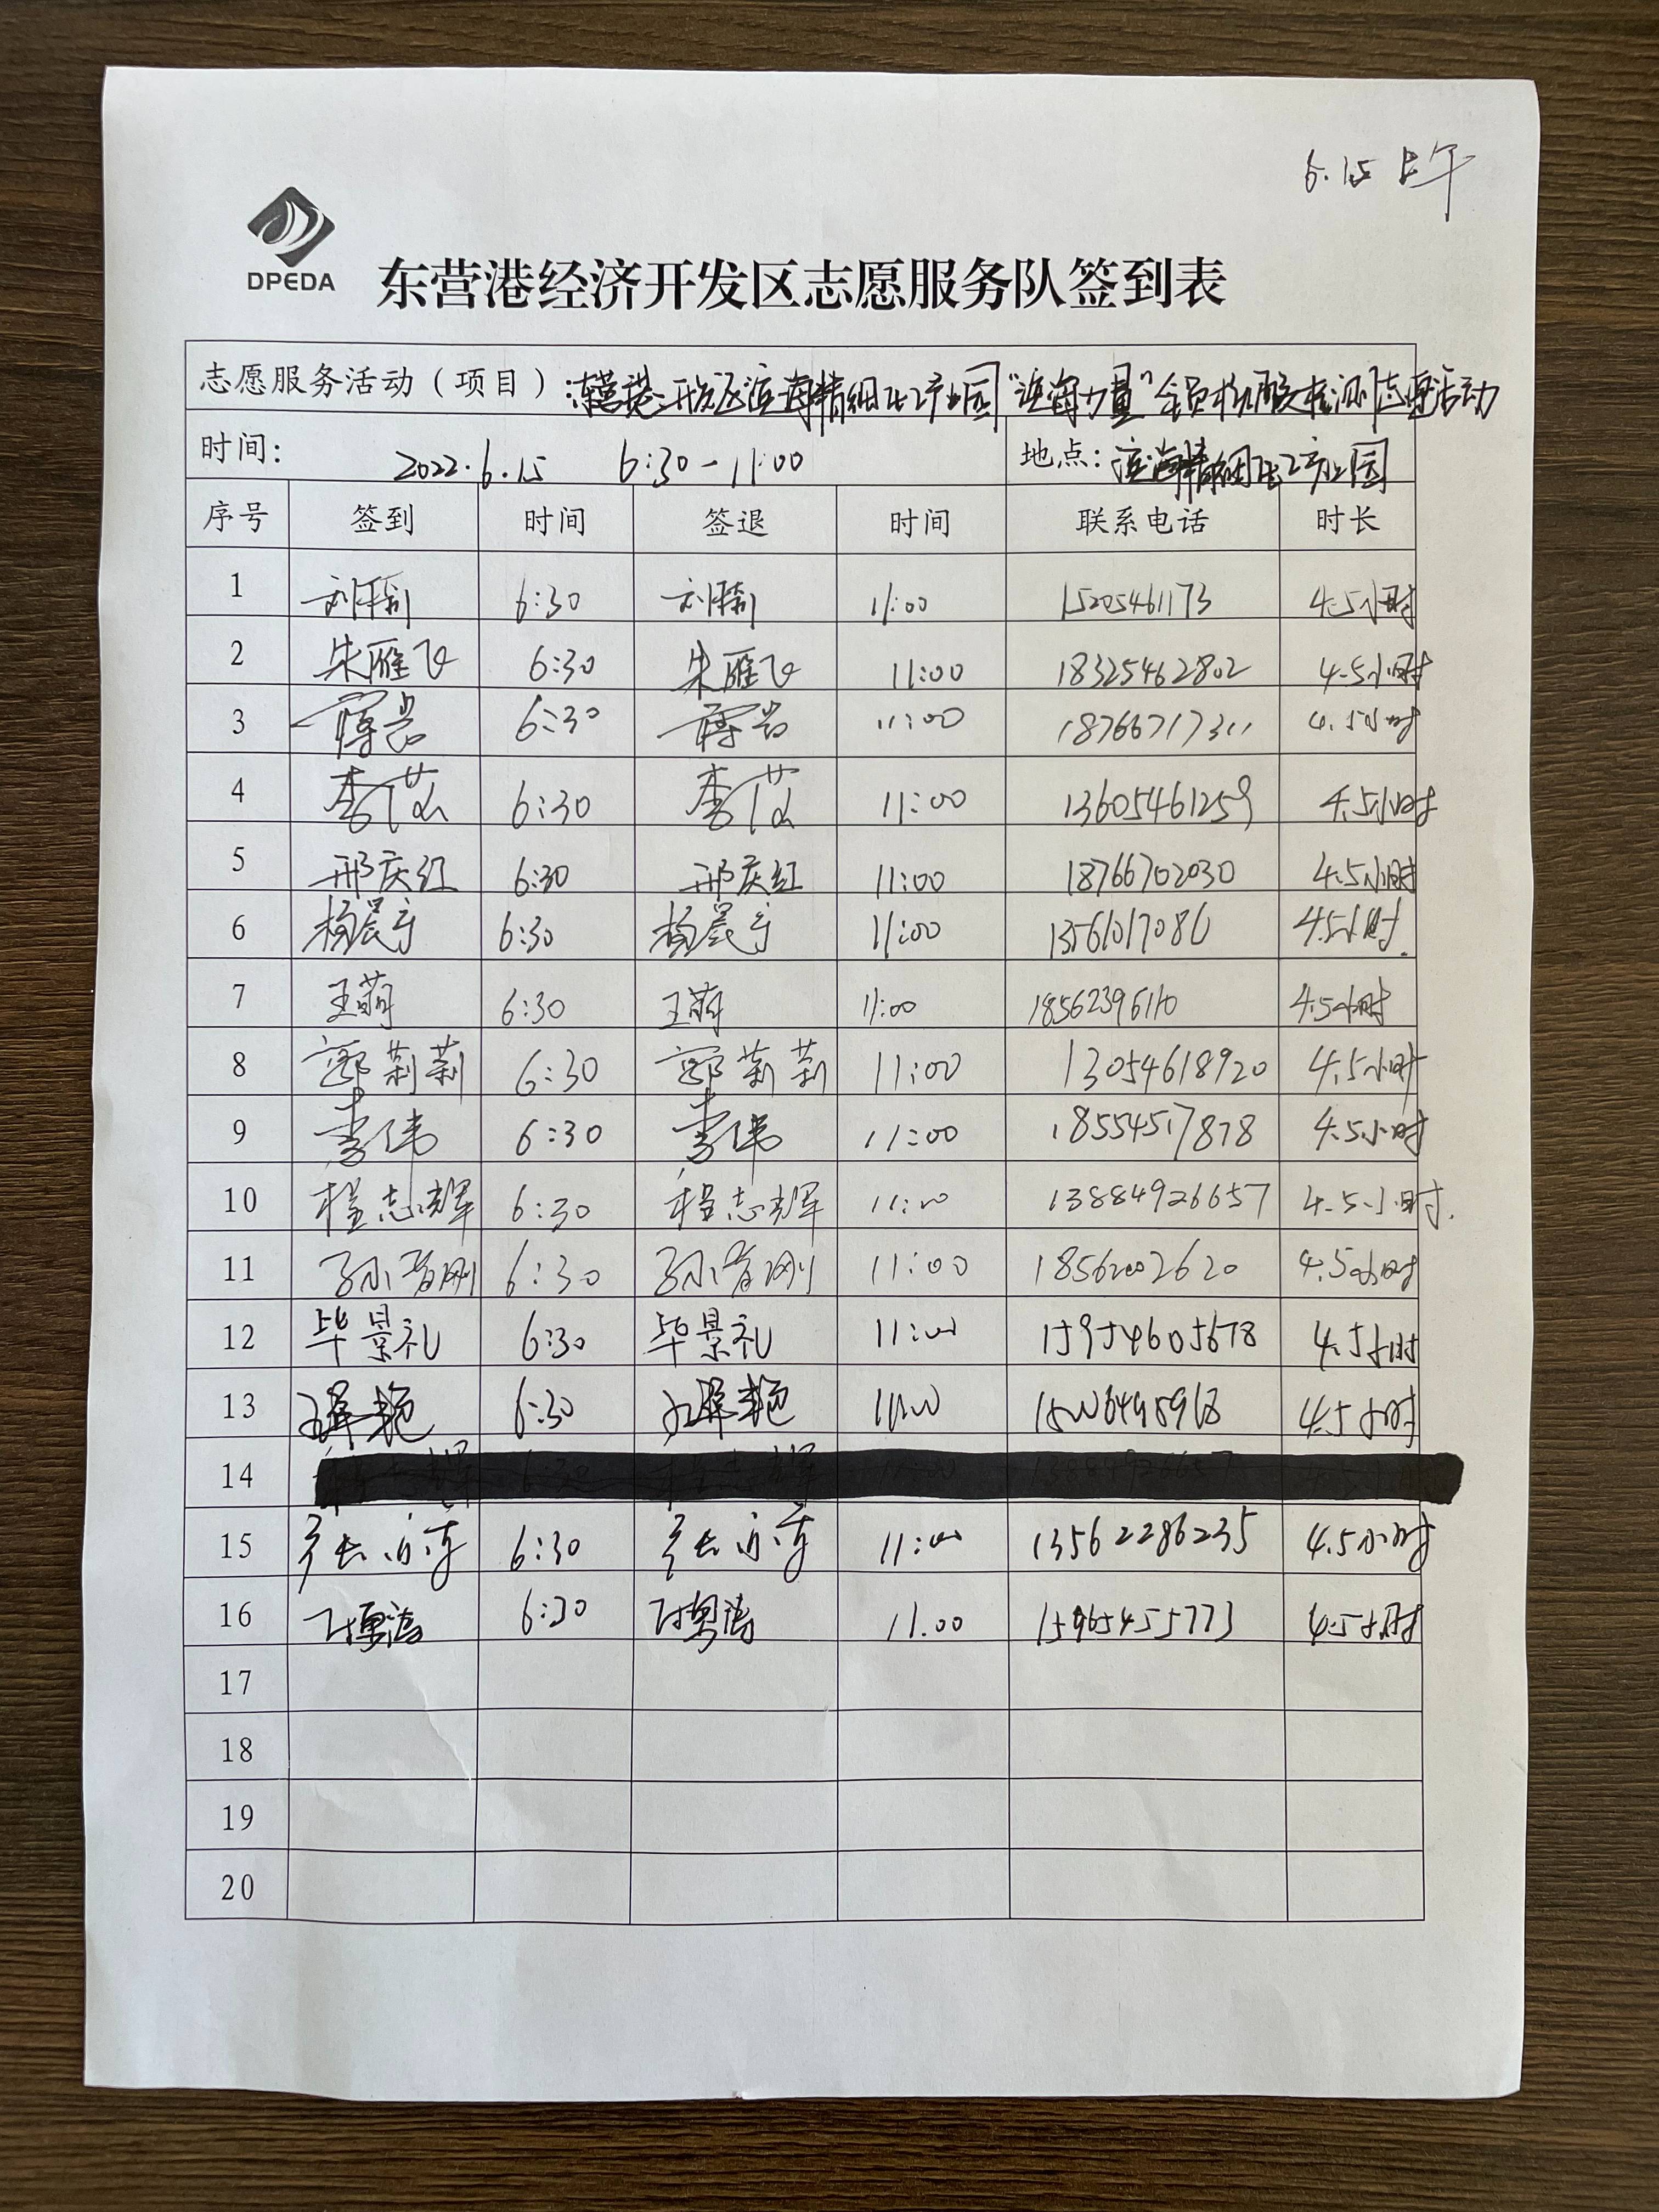 6.15 上午
DPEDA
东营港经济开发区志愿服务队签到表
志愿服务活动（项目）：东营港开发区滨海精细化工产业园“滨海力量”全员核酸检测志愿活动
时间： 2022.6.15 6:30-11:00 地点：滨海精细化工产业园
序号 签到 时间 签退 时间 联系电话 时长
1 6:30 11:00 15205461173 4.5小时
2 朱雁飞 6:30 朱雁飞 11:00 18325462802 4.5小时
3 6:30 11:00 18766717311 4.5小时
4 6:30 11:00 13605461259 4.5小时
5 邢庆红 6:30 邢庆红 11:00 18766702030 4.5小时
6 杨晨宇 6:30 杨晨宇 11:00 4.5小时.
7 王萌 6:30 王萌 11:00 18562396110 4.5小时
8 郭莉莉 6:30 郭莉莉 11:00 13054618920 4.5小时
9 李伟 6:30 李伟 11:00 18554517878 4.5小时
10 程志辉 6:30 程志辉 11:00 13884926657 4.5小时.
11 6:30 11:00 18562002620 4.5小时
12 毕景礼 6:30 毕景礼 11:00 15954605678 4.5小时
13 6:30 11:00 4.5小时
14
15 6:30 11:00 13562286235 4.5小时
16 6:30 11.00 15965455773 4.5小时
17
18
19
20